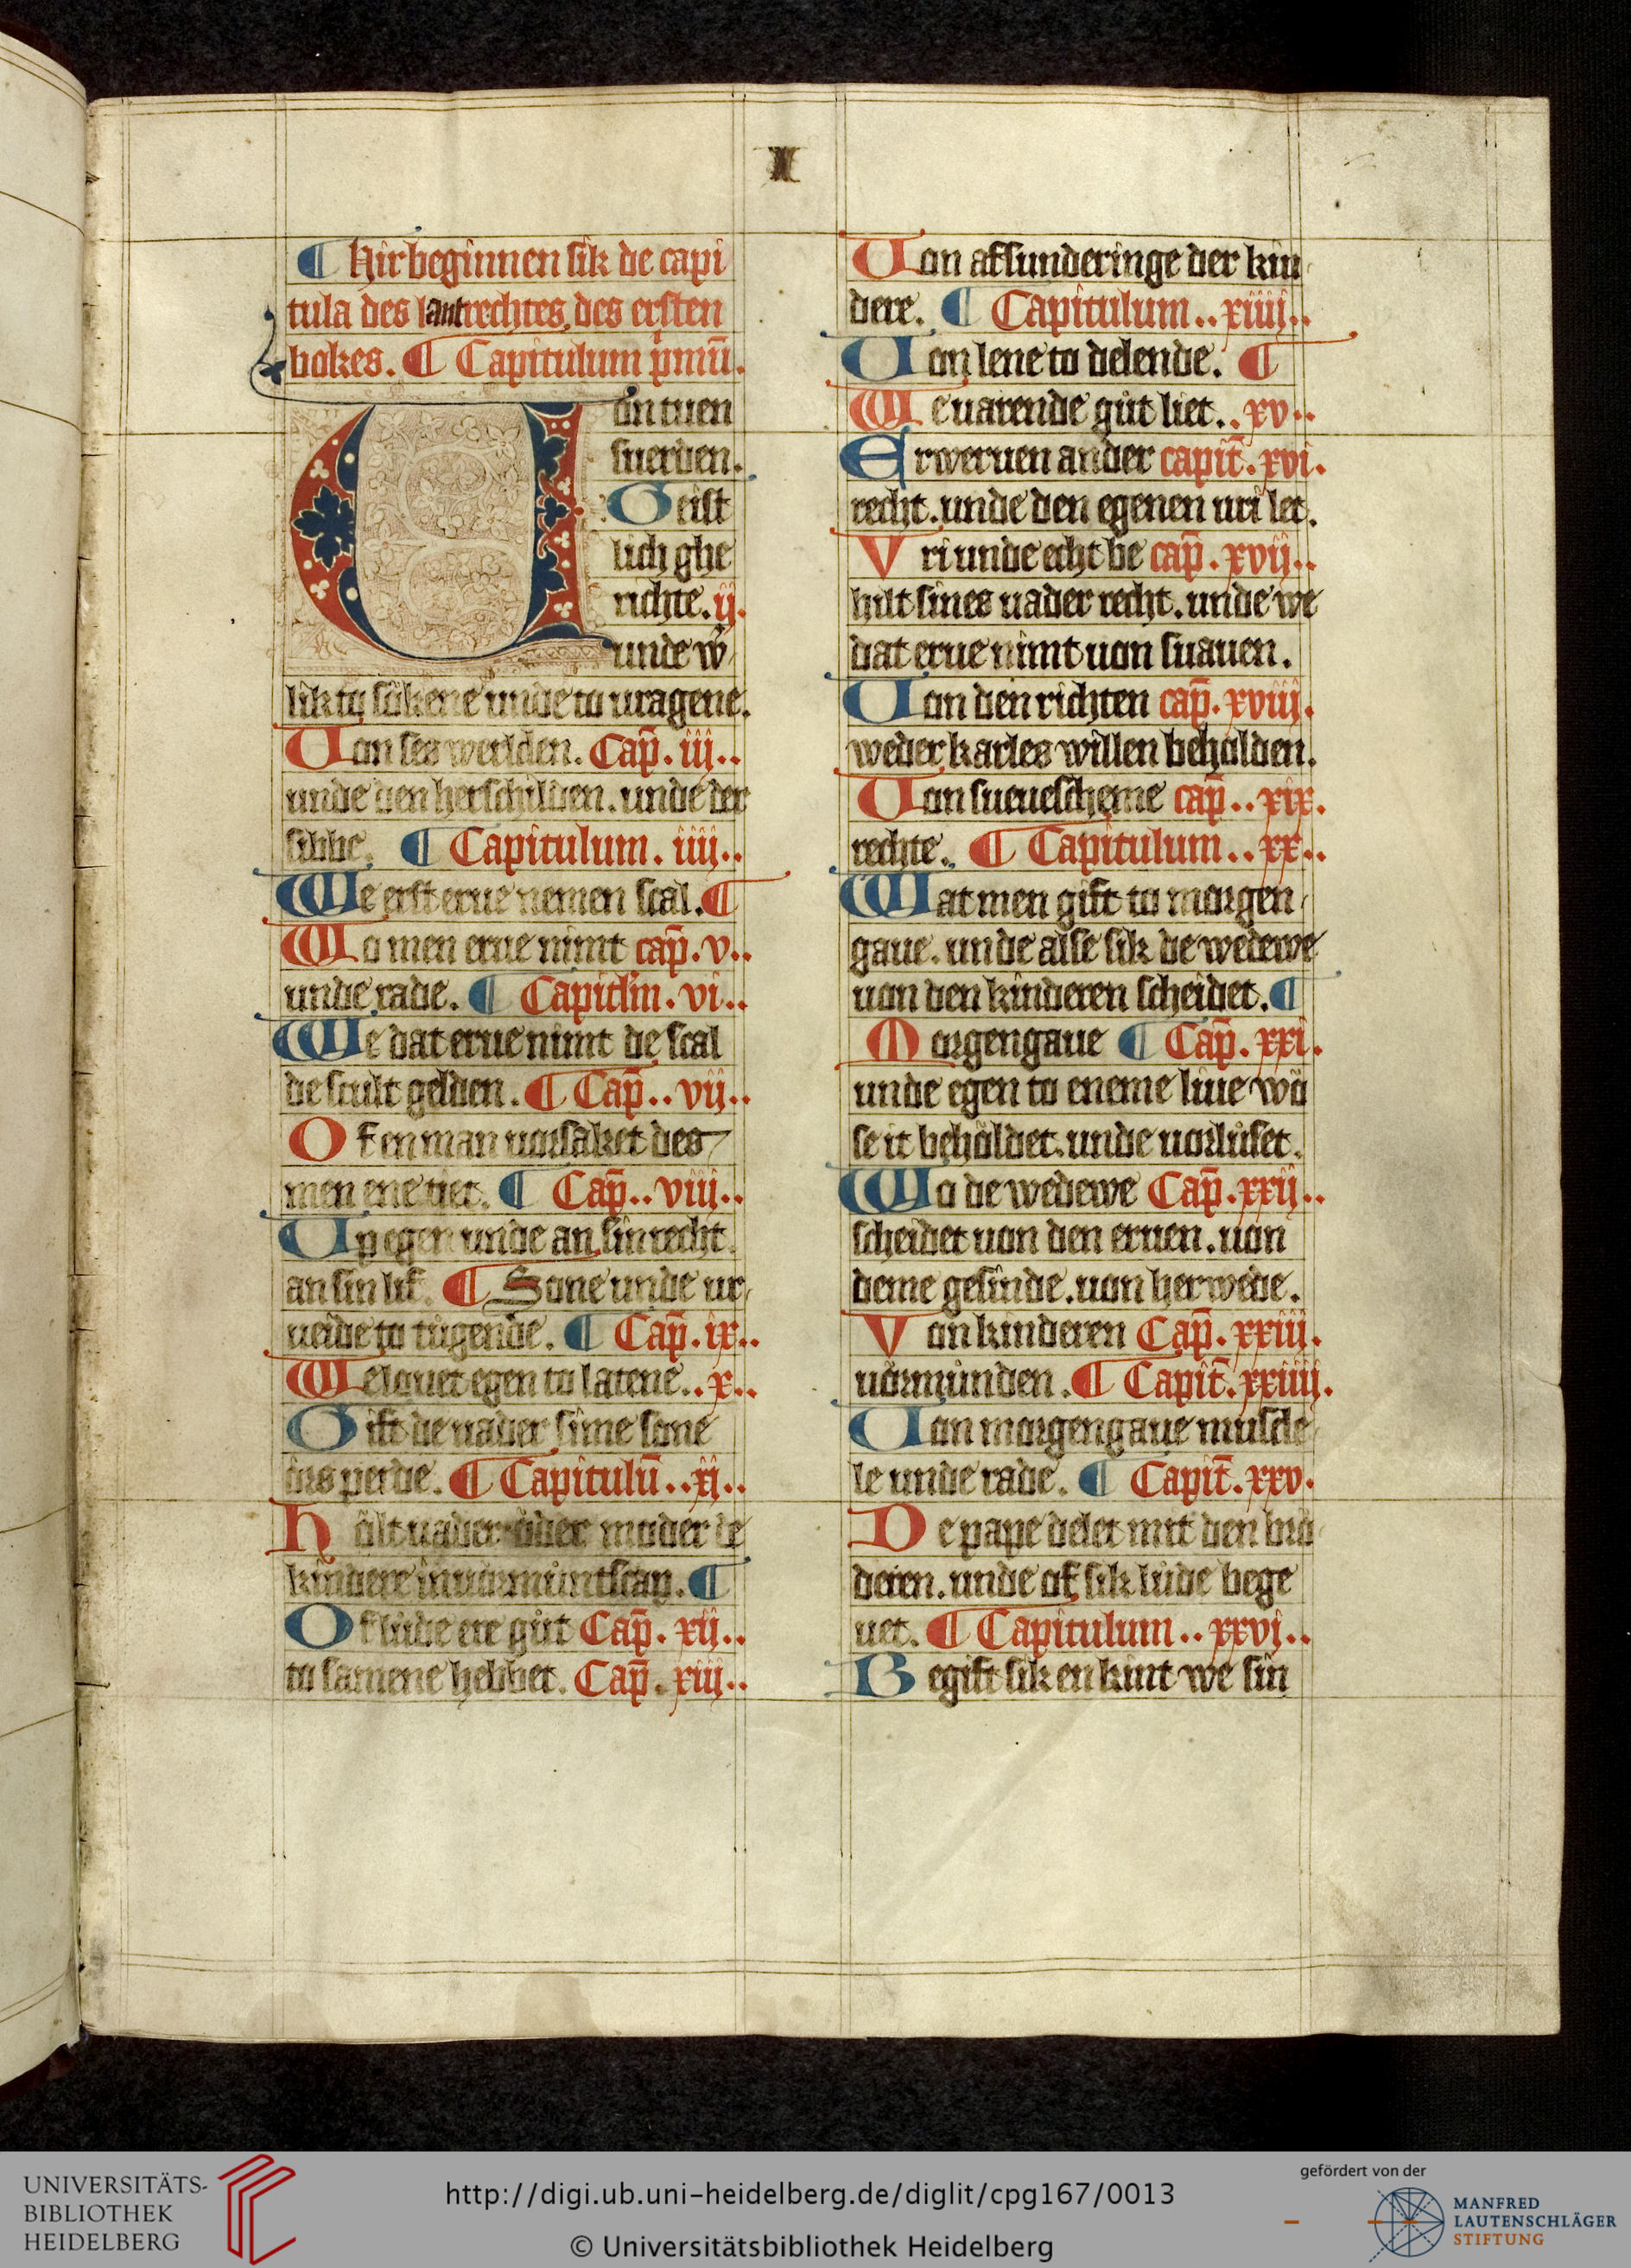 I
¶ Hir beginnen sik de capi
tula des lantrechtes des ersten
bokes. ¶ Capitulum pmū.
Uon tuen
suerden.
Geist
lich ghe
richte. ij.
unde w
lik to sůkene unde to uragene.
Uon ses werlden. Cap̄. iij..
unde den herschilden. unde der
sibbe. ¶ Capitulum. iiij..
We erst erue nemen scal. ¶
Wo men erue nimt cap̄. v..
unde rade. ¶ Capitl'm. vi..
We dat erue nimt de scal
de scult gelden. ¶ Cap̄.. vij..
Of en man uorsaket des
men ene tiet. ¶ Cap̄.. viij..
Up egen unde an sin recht.
an sin lif. ¶ Sone unde ur
ueide to tůgende. ¶ Cap̄. ix..
We louet egen to latene.. x..
Gift de uader sime sone
ors perde. ¶ Capitulū.. xi..
Halt uader oder moder de
kindere in uormuntscap. ¶
Of lude ere gůt Cap̄. xij..
to samene hebbet. Cap̄. xiij..
Uon afsunderinge der kin
dere. ¶ Capitulum.. xiiij..
Uon lene to delende. ¶
We uarende gůt liet.. xv..
Erweruen ander capit̄. xvi.
recht. unde den egenen uri let.
Vri unde echt be cap̄. xvij..
hilt sines uader recht. unde we
dat erue nimt uon suauen.
Uon den richten cap̄. xviij.
weder karles willen beholden.
Uon sueuescheme cap̄.. xix.
rechte. ¶ Capitulum.. xx..
Wat men gift to morgen
gaue. unde alse sik de wedewe
uon den kinderen scheidet. ¶
Morgengaue ¶ Cap̄. xxi.
unde egen to eneme liue wo
se it behöldet. unde uorlůset.
Wo de wedewe Cap̄. xxij..
scheidet uon den eruen. uon
deme gesinde. uon herwede.
Von kinderen Cap̄. xxiij.
uörmůnden. ¶ Capit̄. xxiiij.
Uon morgengaue musde
le unde rade. ¶ Capit̄. xxv.
De pape delet mit den bro
deren. unde of sik lůde bege
uet. ¶ Capitulum.. xxvi..
Begift sik en kint we sin
UNIVERSITÄTS-
BIBLIOTHEK
HEIDELBERG
http://digi.ub.uni-heidelberg.de/diglit/cpg167/0013
© Universitätsbibliothek Heidelberg
gefördert von der
MANFRED
LAUTENSCHLÄGER
STIFTUNG